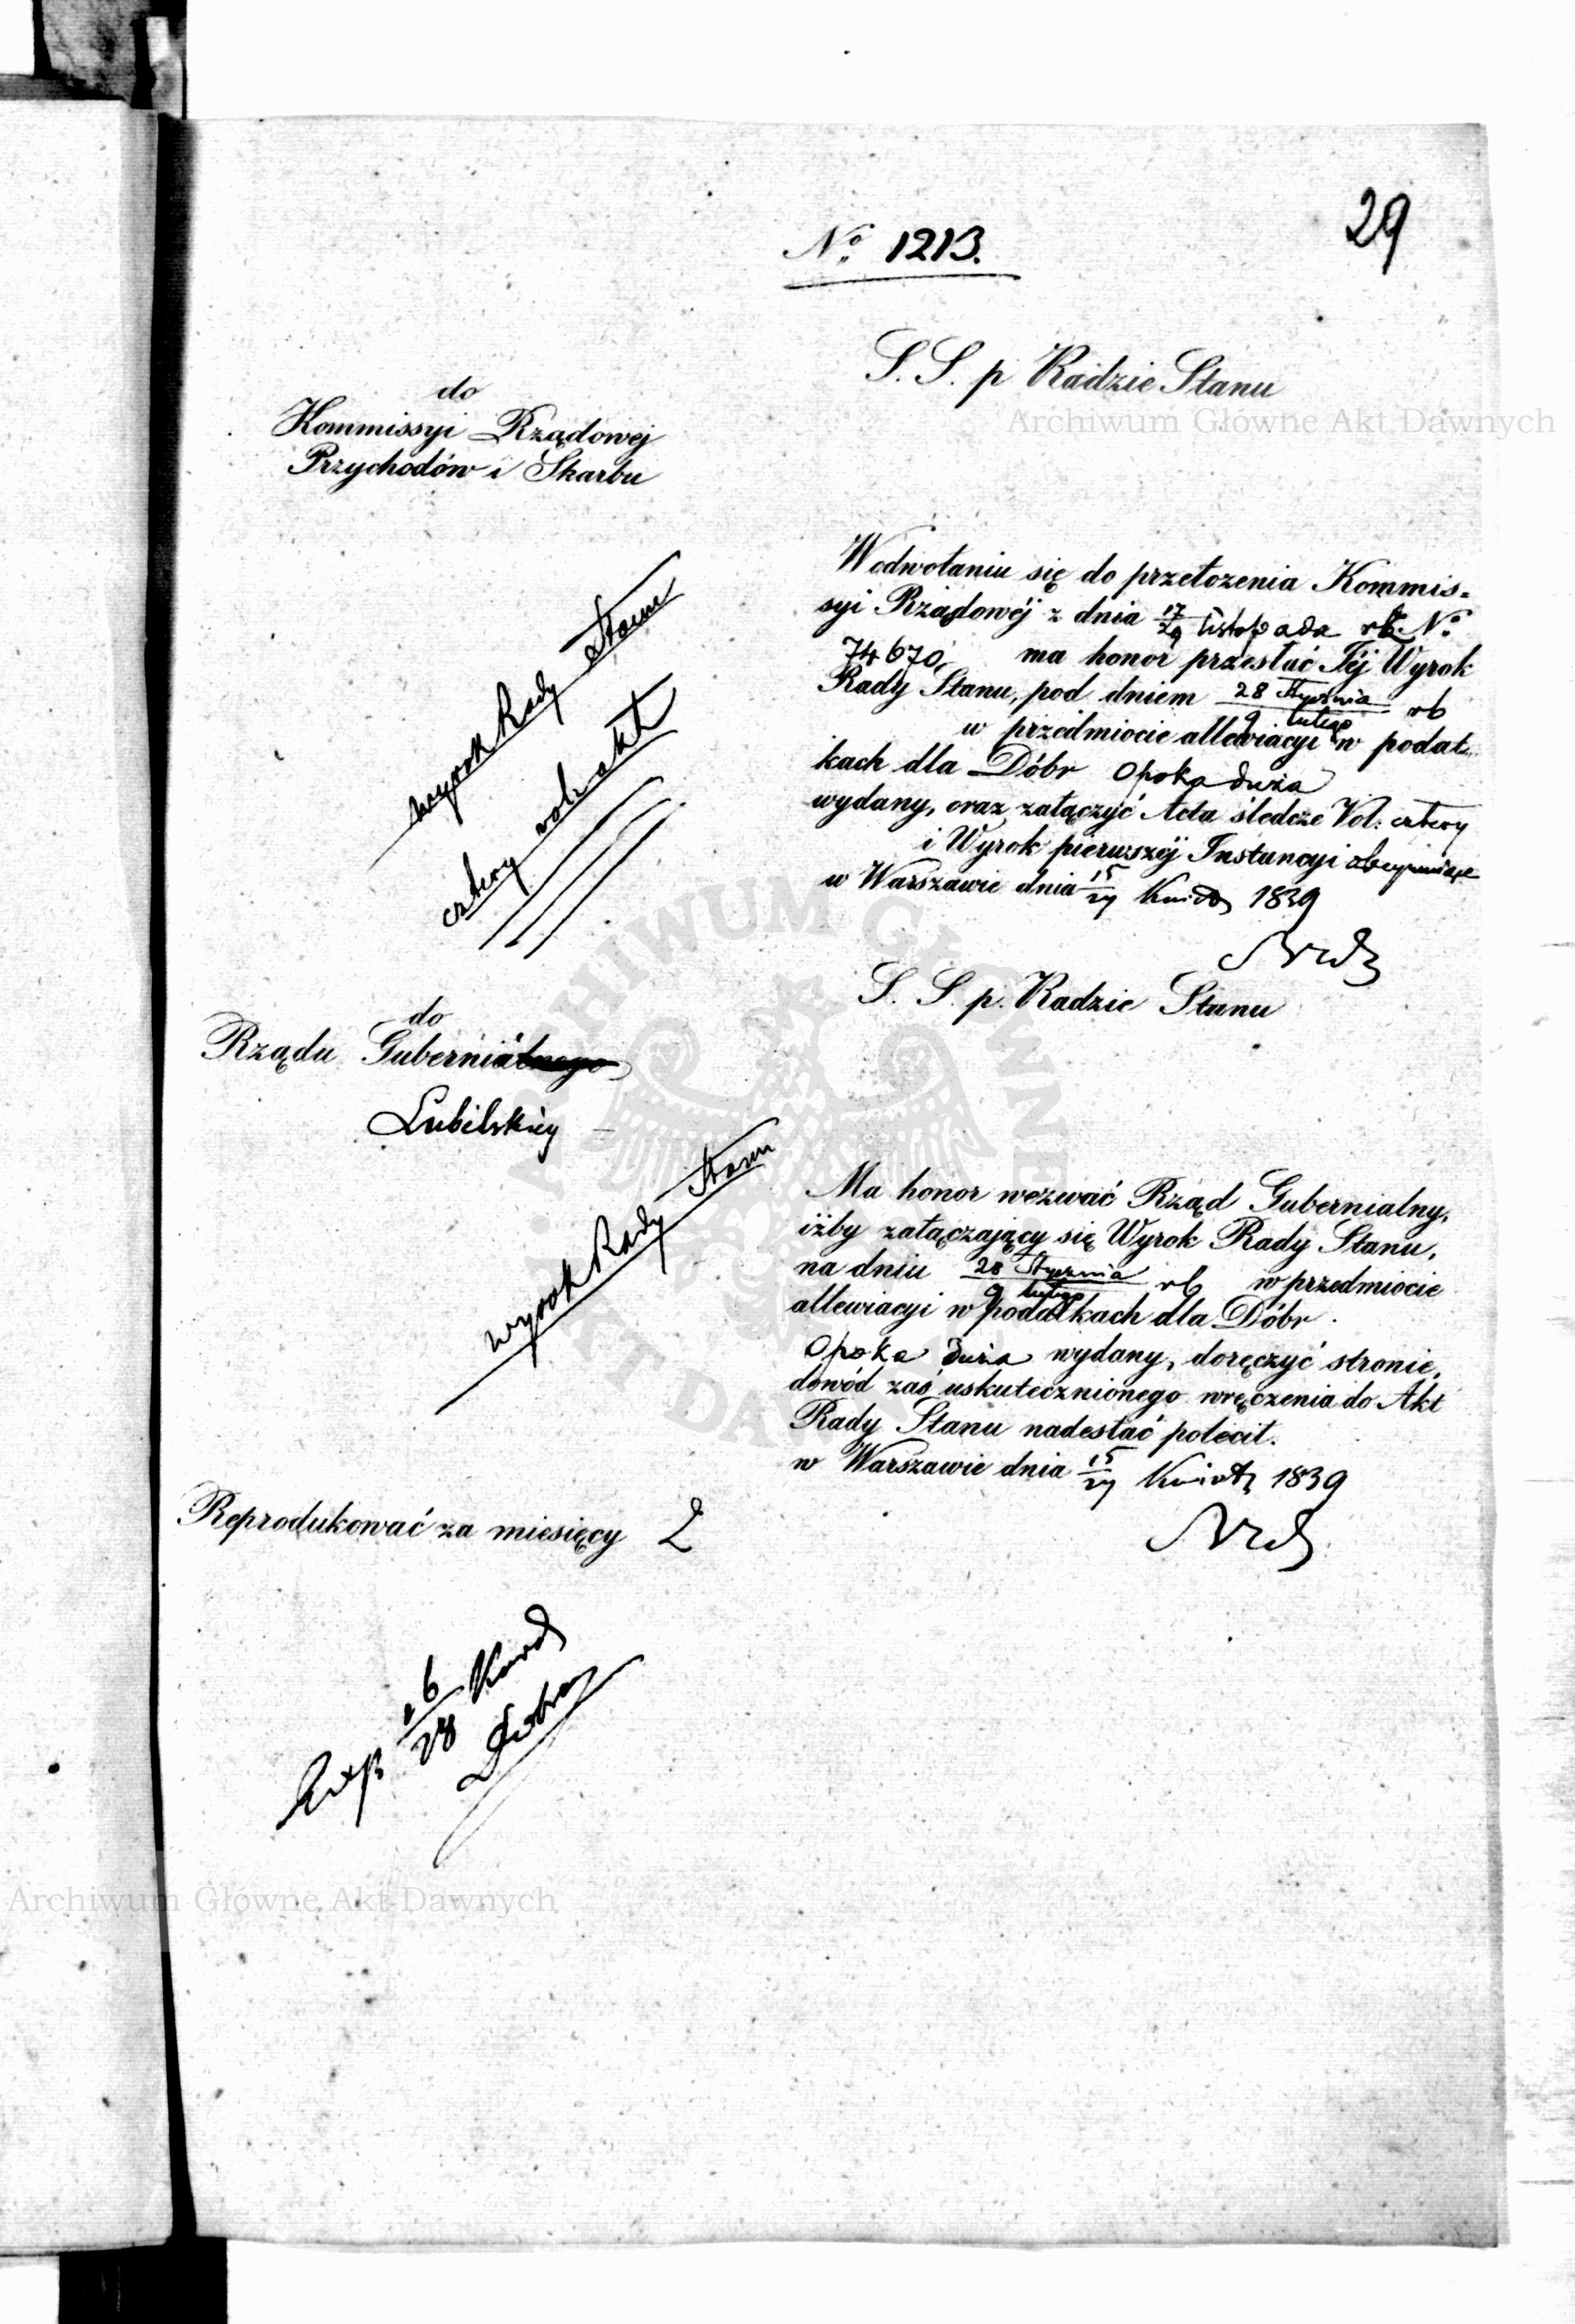 29
No 1213.
S. S. p Radzie Stanu
Archiwum Główne Akt Dawnych
do
Kommissyi Rządowej
Przychodów i Skarbu
W odwołaniu się do przełożenia Kommis=
syi Rządowéj z dnia 17/29 listopada rb. No
74670, ma honor przesłać Téj Wyrok
Rady Stanu, pod dniem 28 Stycznia / 9 lutego rb
w przedmiocie allewiacyi w podat=
kach dla Dóbr Opoka duża
wydany, oraz załączyć Acta śledcze Vol: cztery
i Wyrok pierwszéj Instancyi obejmujące
w Warszawie dnia 15/27 Kwiet 1839
wyrok Rady Stanu
cztery vol. akt
S. S. p. Radzie Stanu
do
Rządu Gubernialnego
Lubelskiey
wyrok Rady Stanu
Ma honor wezwać Rząd Gubernialny,
iżby załączający się Wyrok Rady Stanu,
na dniu 28 Stycznia / 9 lutego rb w przedmiocie
allewiacyi w podatkach dla Dóbr
Opoka duża wydany, doręczyć stronie,
dowód zaś uskutecznionego wręczenia do Akt
Rady Stanu nadesłać polecił.
w Warszawie dnia 15/27 Kwiet 1839
Reprodukować za miesięcy 2
16/28
Archiwum Główne Akt Dawnych
ARCHIWUM GŁÓWNE AKT DAWNYCH